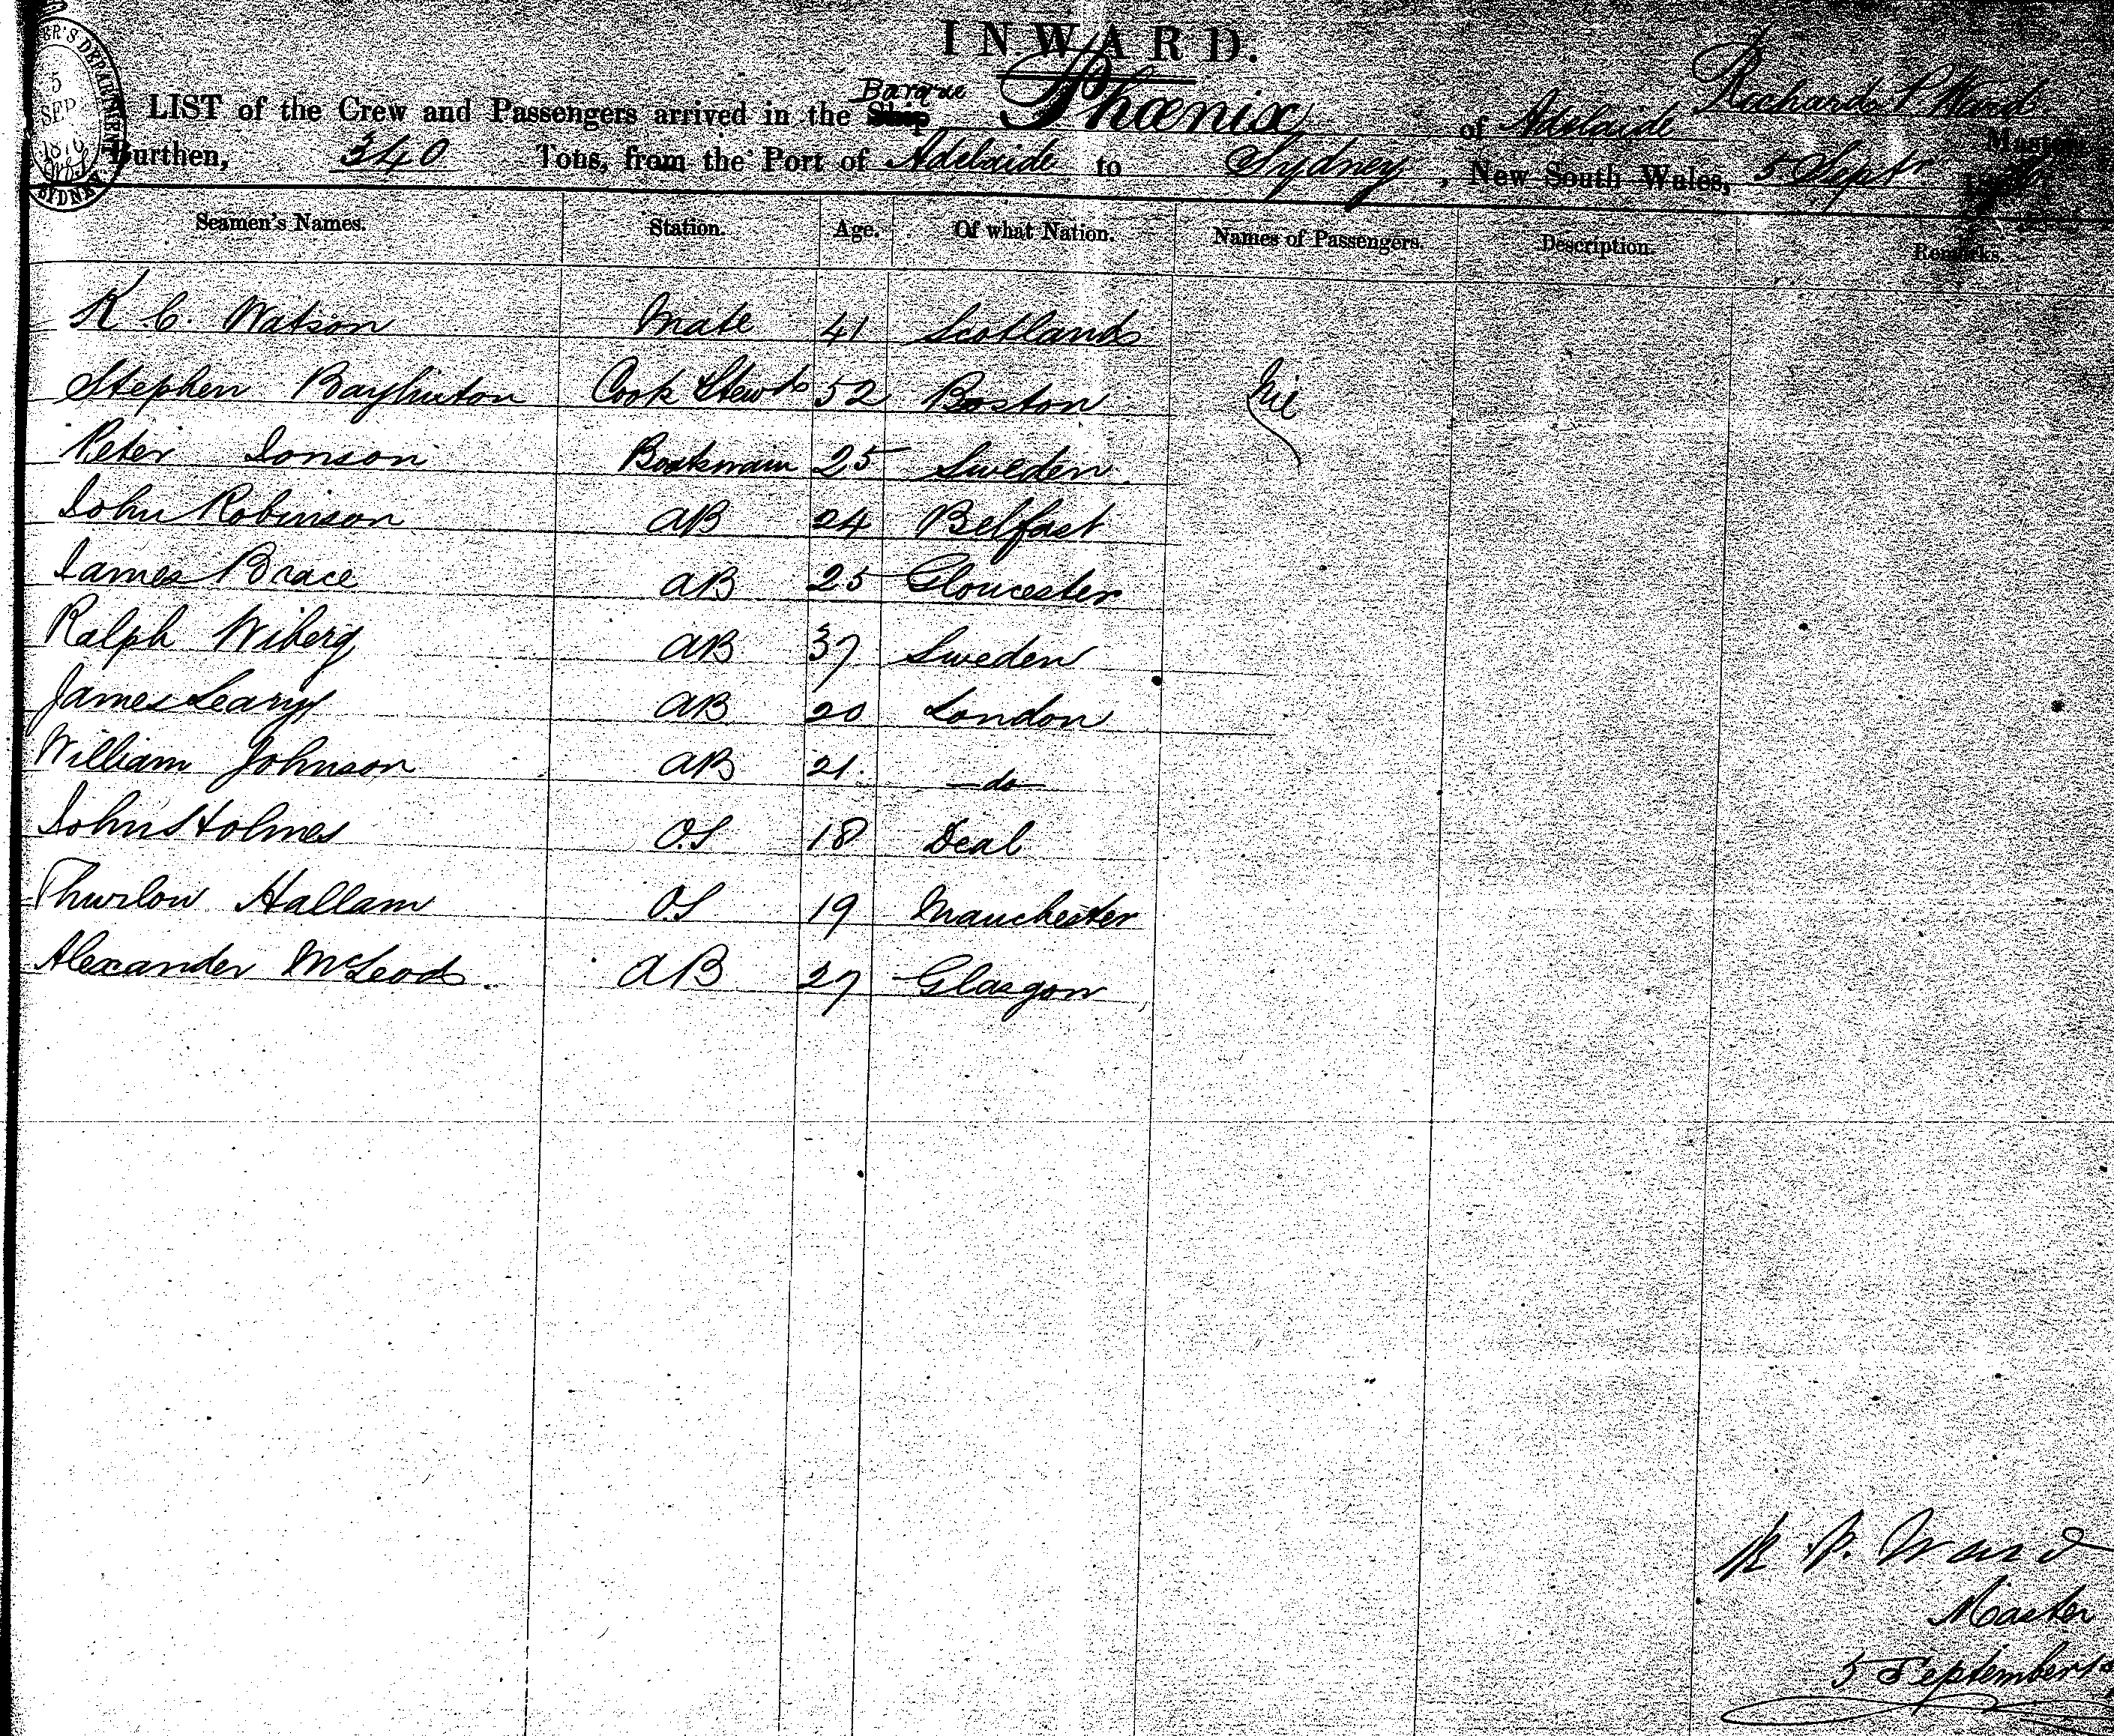 INWARD.
5
SEP
1876
SYDNEY
Barque Richard P Ward
LIST of the Crew and Passengers arrived in the Ship Phœnix of Adelaide Master,
Burthen, 340 Tons, from the Port of Adelaide to Sydney, New South Wales, 5 Septr
Seamen's Names. Station. Age. Of what Nation. Names of Passengers. Description. Remarks.
K C. Watson Mate 41 Scotland
Stephen Cook & Stewd 52 Boston Nil
Peter Ionson Boatswain 25 Sweden
John Robinson AB 24 Belfast
James Brace AB 25 Gloucester
Ralph Wiberg AB 37 Sweden
James Leary AB 20 London
William Johnson AB 21. —do—
John Holmes O.S 18 Deal
Thurlow Hallam O.S 19 Manchester
Alexander McLeod. AB 27 Glasgow
R P. Ward
Master
5 September